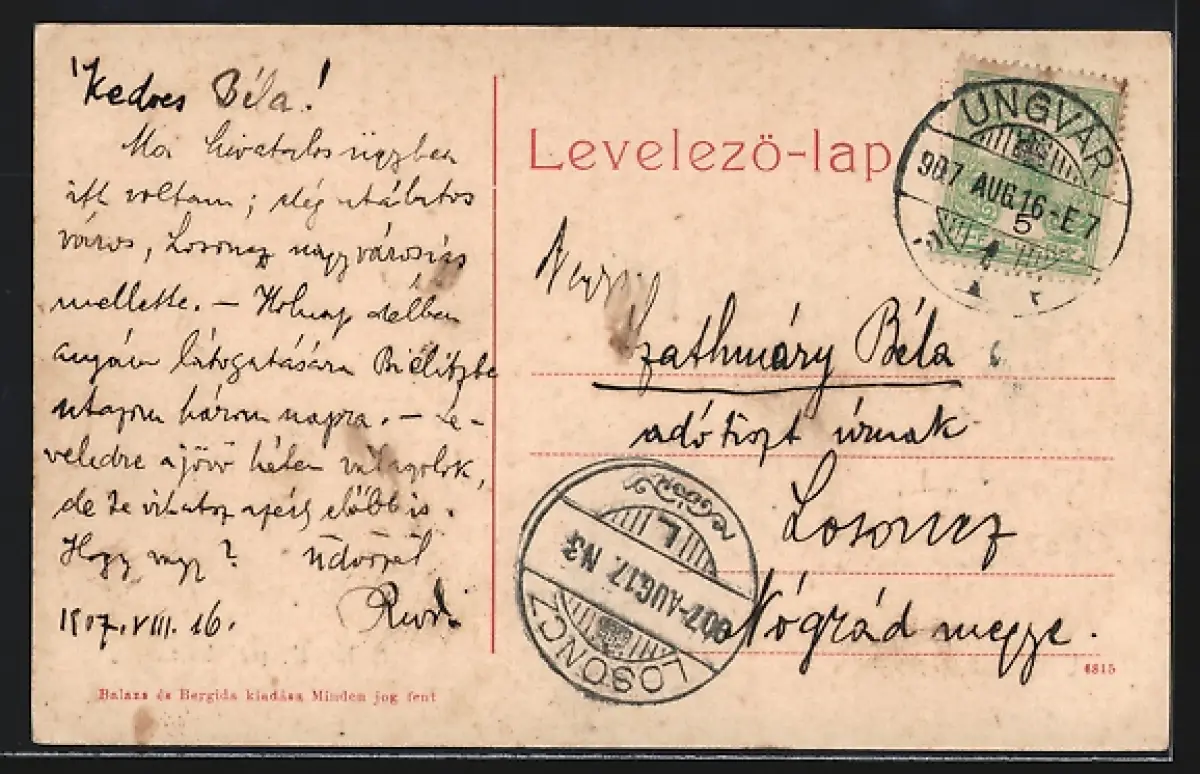 Kedves Béla!
Ma hivatalos ügyben
itt voltam; elég utálatos
város, Losoncz nagyvárosias
mellette. — Holnap délben
anyám látogatására Bielitzbe
utazom három napra. — Le-
veledre a jövő héten válaszolok,
de Te írhatsz azért előbb is.
Hogy vagy? Üdvözöl
Rudi
1907. VIII. 16.
Balazs és Bergida kiadása Minden jog fent
Levelező-lap
UNGVÁR
907 AUG. 16-E7
5
Szathmáry Béla
adótiszt úrnak
Losoncz
Nógrád megye.
L
907-AUG.17. N3
LOSONCZ
6815